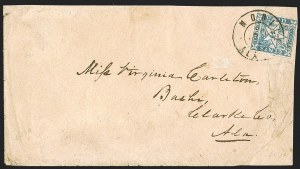 Miss Virginia Carleton,
Bashi,
Clarke Co.
Ala.